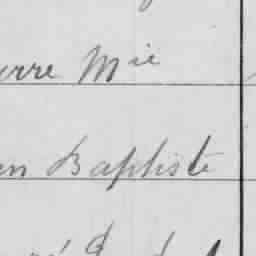 erre Mie
en Baptiste